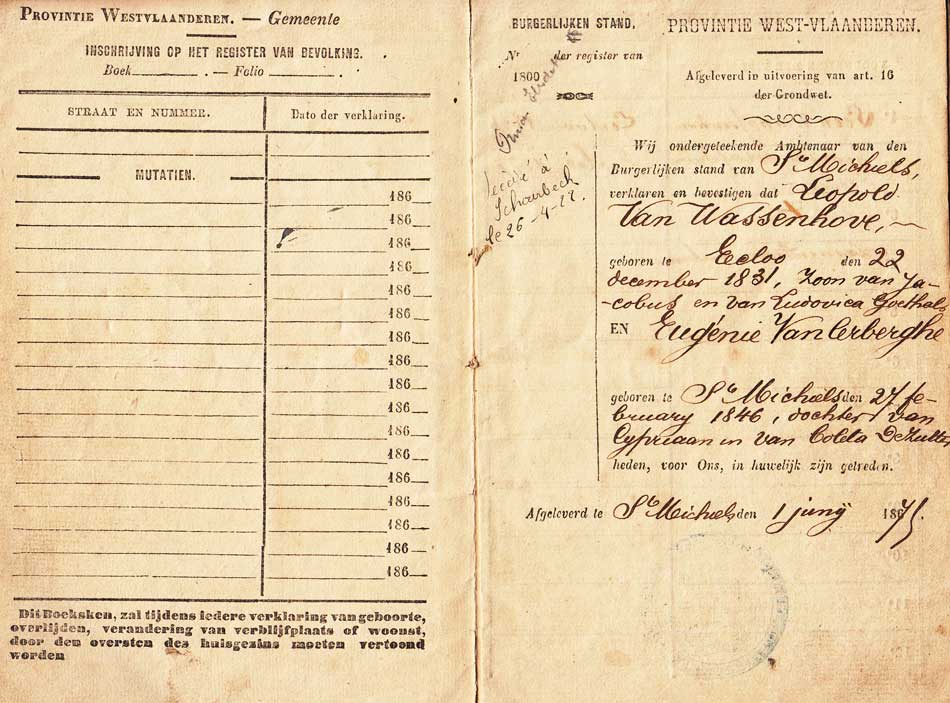 PROVINCIE WESTVLAANDEREN. — Gemeente
INSCHRIJVING OP HET REGISTER VAN BEVOLKING.
Boek . — Folio .
STRAAT EN NUMMER. Dato der verklaring.
MUTATIEN.
186
186
186
186
186
186
186
186
186
186
186
186
186
186
186
186
186
Dit Boeksken, zal tijdens iedere verklaring van geboorte,
overlijden, verandering van verblijfplaats of woonst,
door den oversten des huisgezins moeten vertoond
worden
BURGERLIJKEN STAND.
Nr der register van
1800
décédé à
Schaerbeek
le 26-4-22.
PROVINTIE WEST-VLAANDEREN.
Afgeleverd in uitvoering van art. 16
der Grondwet.
Wij ondergeteekende Ambtenaar van den
Burgerlijken stand van St Michiels,
verklaren en bevestigen dat Leopold
Van Wassenhove,
geboren te Eecloo den 22
december 1831, Zoon van Ja-
-cobus en van Ludovica Goethals
EN Eugénie Vanlerberghe
geboren te St Michiels den 27 fe-
bruary 1846, dochter van
Cypriaan en van Coleta Dezutter,
heden, voor Ons, in huwelijk zijn getreden.
Afgeleverd te St Michiels den 1 junij 1875.